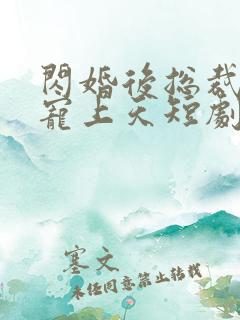 閃婚後總裁
寵上天短劇
寒文
未经同意禁止转载